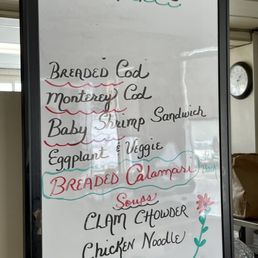 BREADED Cod
Monterey Cod
Baby Shrimp Sandwich
Eggplant & Veggie
BREADED Calamari
Soups
CLAM CHOWDER
Chicken Noodle